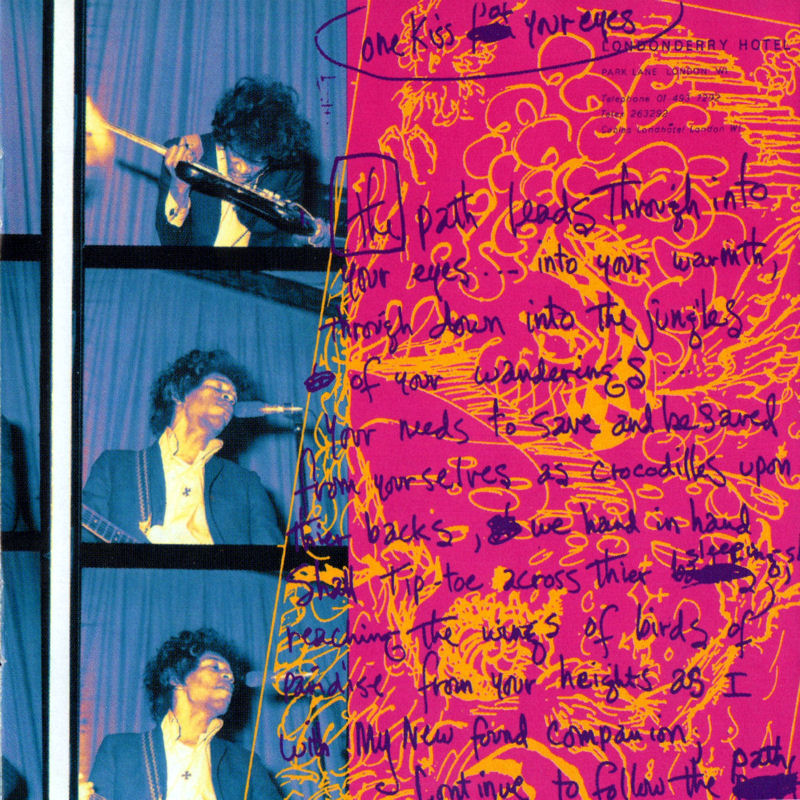 one Kiss your eyes
LONDONDERRY HOTEL
PARK LANE LONDON W1
Telephone 01 493 7292
Telex 263292
Cables Londhotel London W1
the path leads through into
your eyes.... into your warmth,
through down into the jungles
of your wanderings ....
your needs to save and be saved
from yourselves as crocodilles upon
thier backs, we hand in hand
shall Tip-toe across thier sleeping
reaching the wings of birds of
paradise from your heights as I
with My New found companion,
Continue to follow the path